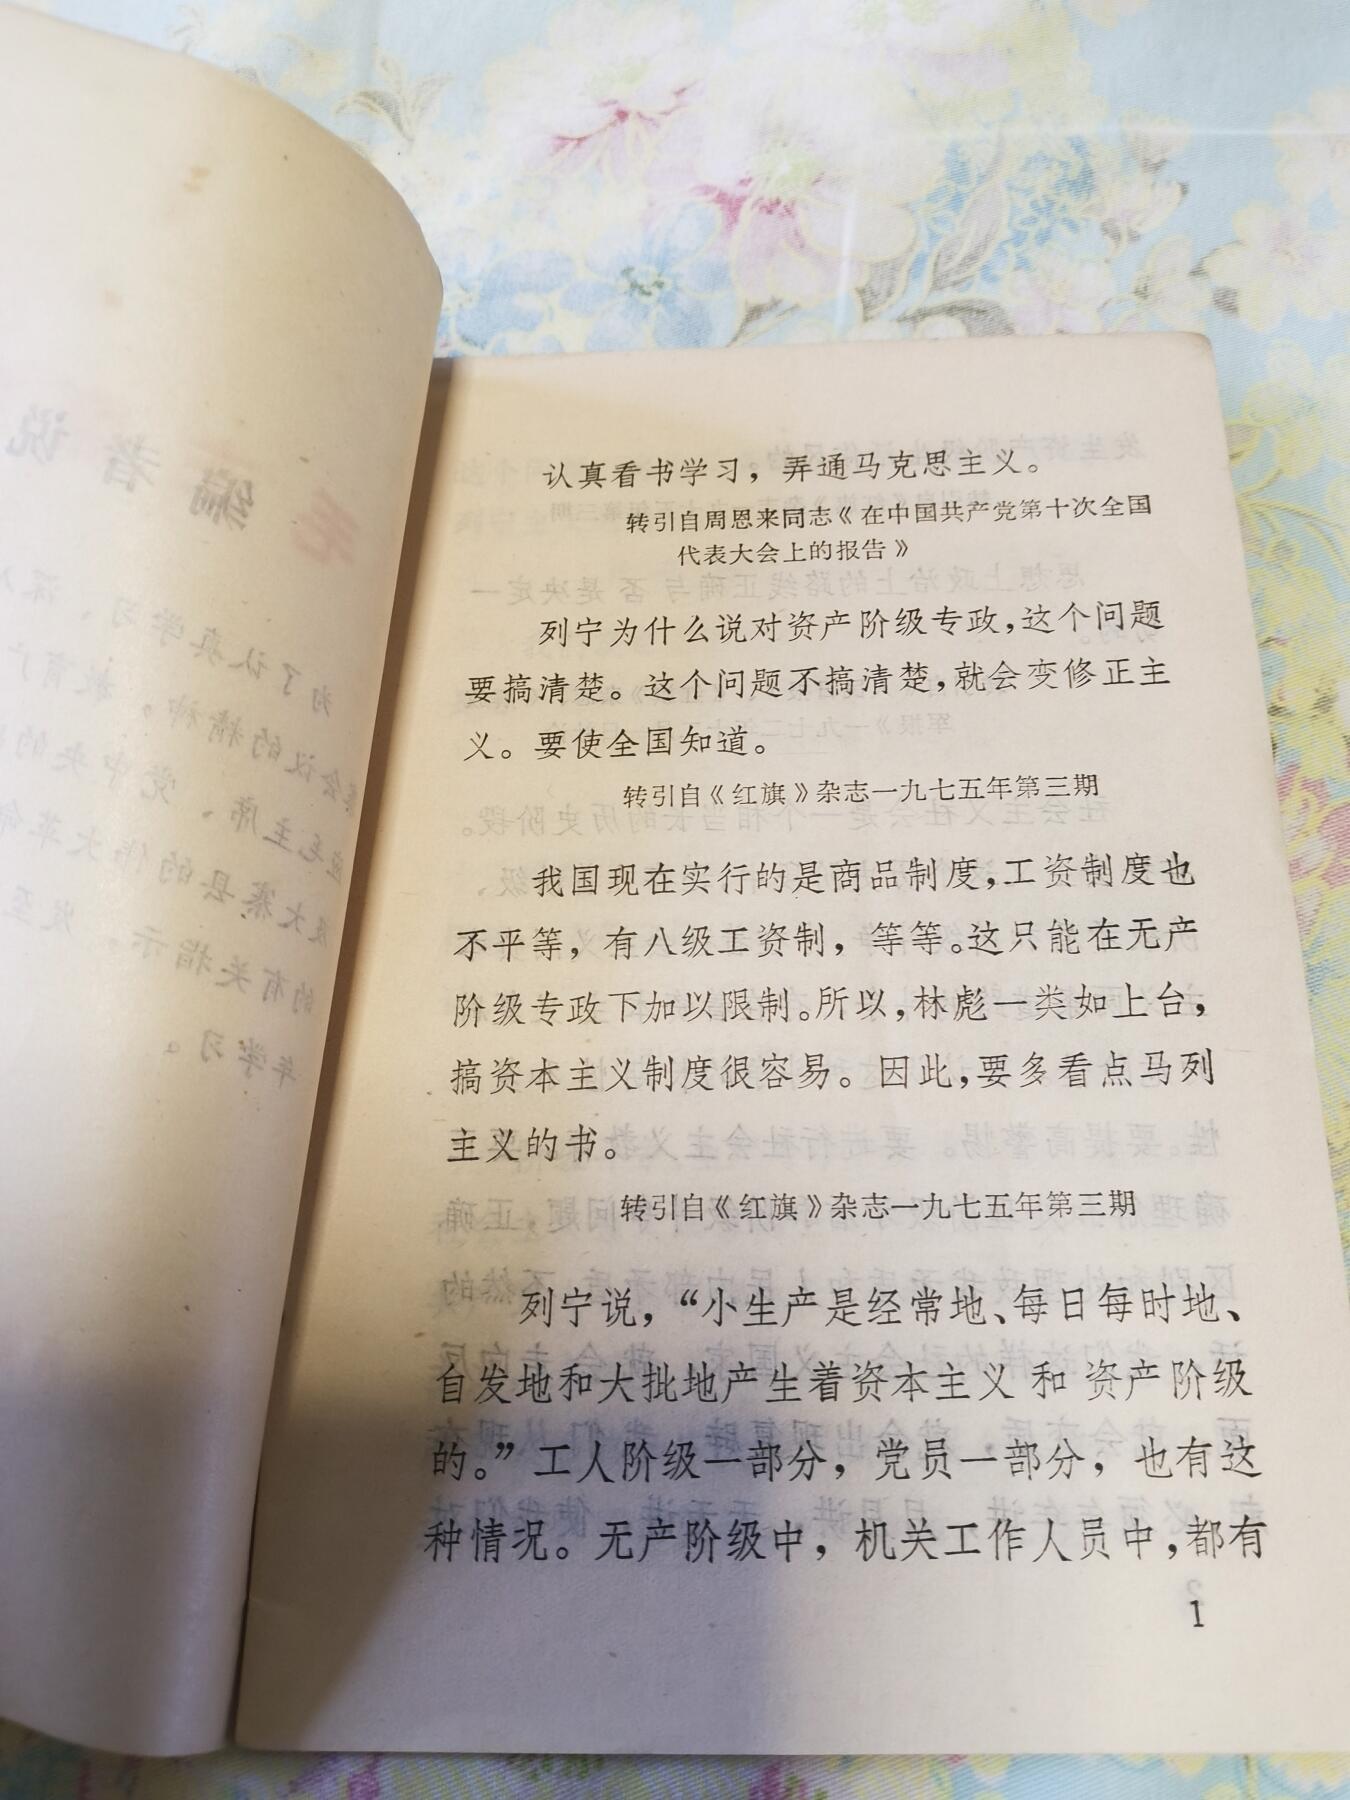 认真看书学习，弄通马克思主义。
转引自周恩来同志《在中国共产党第十次全国
代表大会上的报告》
列宁为什么说对资产阶级专政，这个问题
要搞清楚。这个问题不搞清楚，就会变修正主
义。要使全国知道。
转引自《红旗》杂志一九七五年第三期
我国现在实行的是商品制度，工资制度也
不平等，有八级工资制，等等。这只能在无产
阶级专政下加以限制。所以，林彪一类如上台，
搞资本主义制度很容易。因此，要多看点马列
主义的书。
转引自《红旗》杂志一九七五年第三期
列宁说，“小生产是经常地、每日每时地、
自发地和大批地产生着资本主义和资产阶级
的。”工人阶级一部分，党员一部分，也有这
种情况。无产阶级中，机关工作人员中，都有
1